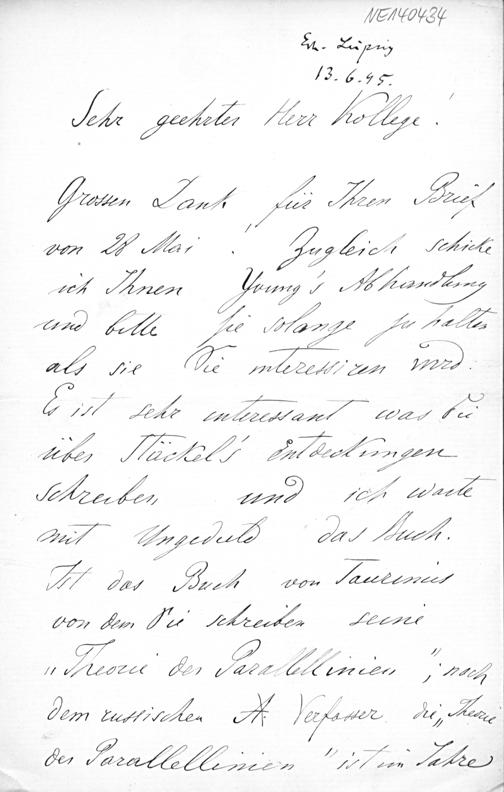 NE140434
Erh. Leipzig
13.6.95.
Sehr geehrter Herr Kollege!
Grossen Dank für Ihren Brief
von 28 Mai! Zugleich schicke
ich Ihnen Young's Abhandlung
und bitte sie solange zu halten
als sie Sie interessiren wird.
Es ist sehr interessant was Sie
über Stäckel's Entdeckungen
schreiben und ich warte
mit Ungeduld das Buch.
Ist das Buch von Taurinus
von dem Sie schreiben seine
„Theorie der Parallellinien"; nach
dem russischen Verfasser die „Theorie
der Parallellinien" ist im Jahre